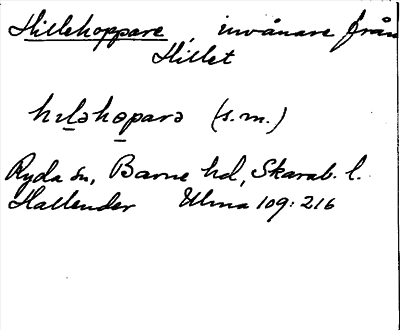 Hillehoppare, invånare från
Hillet
hɪləhopərə (s.m.)
Ryda sn, Barne hd, Skarab. l.
Hallender Ulma 109:216